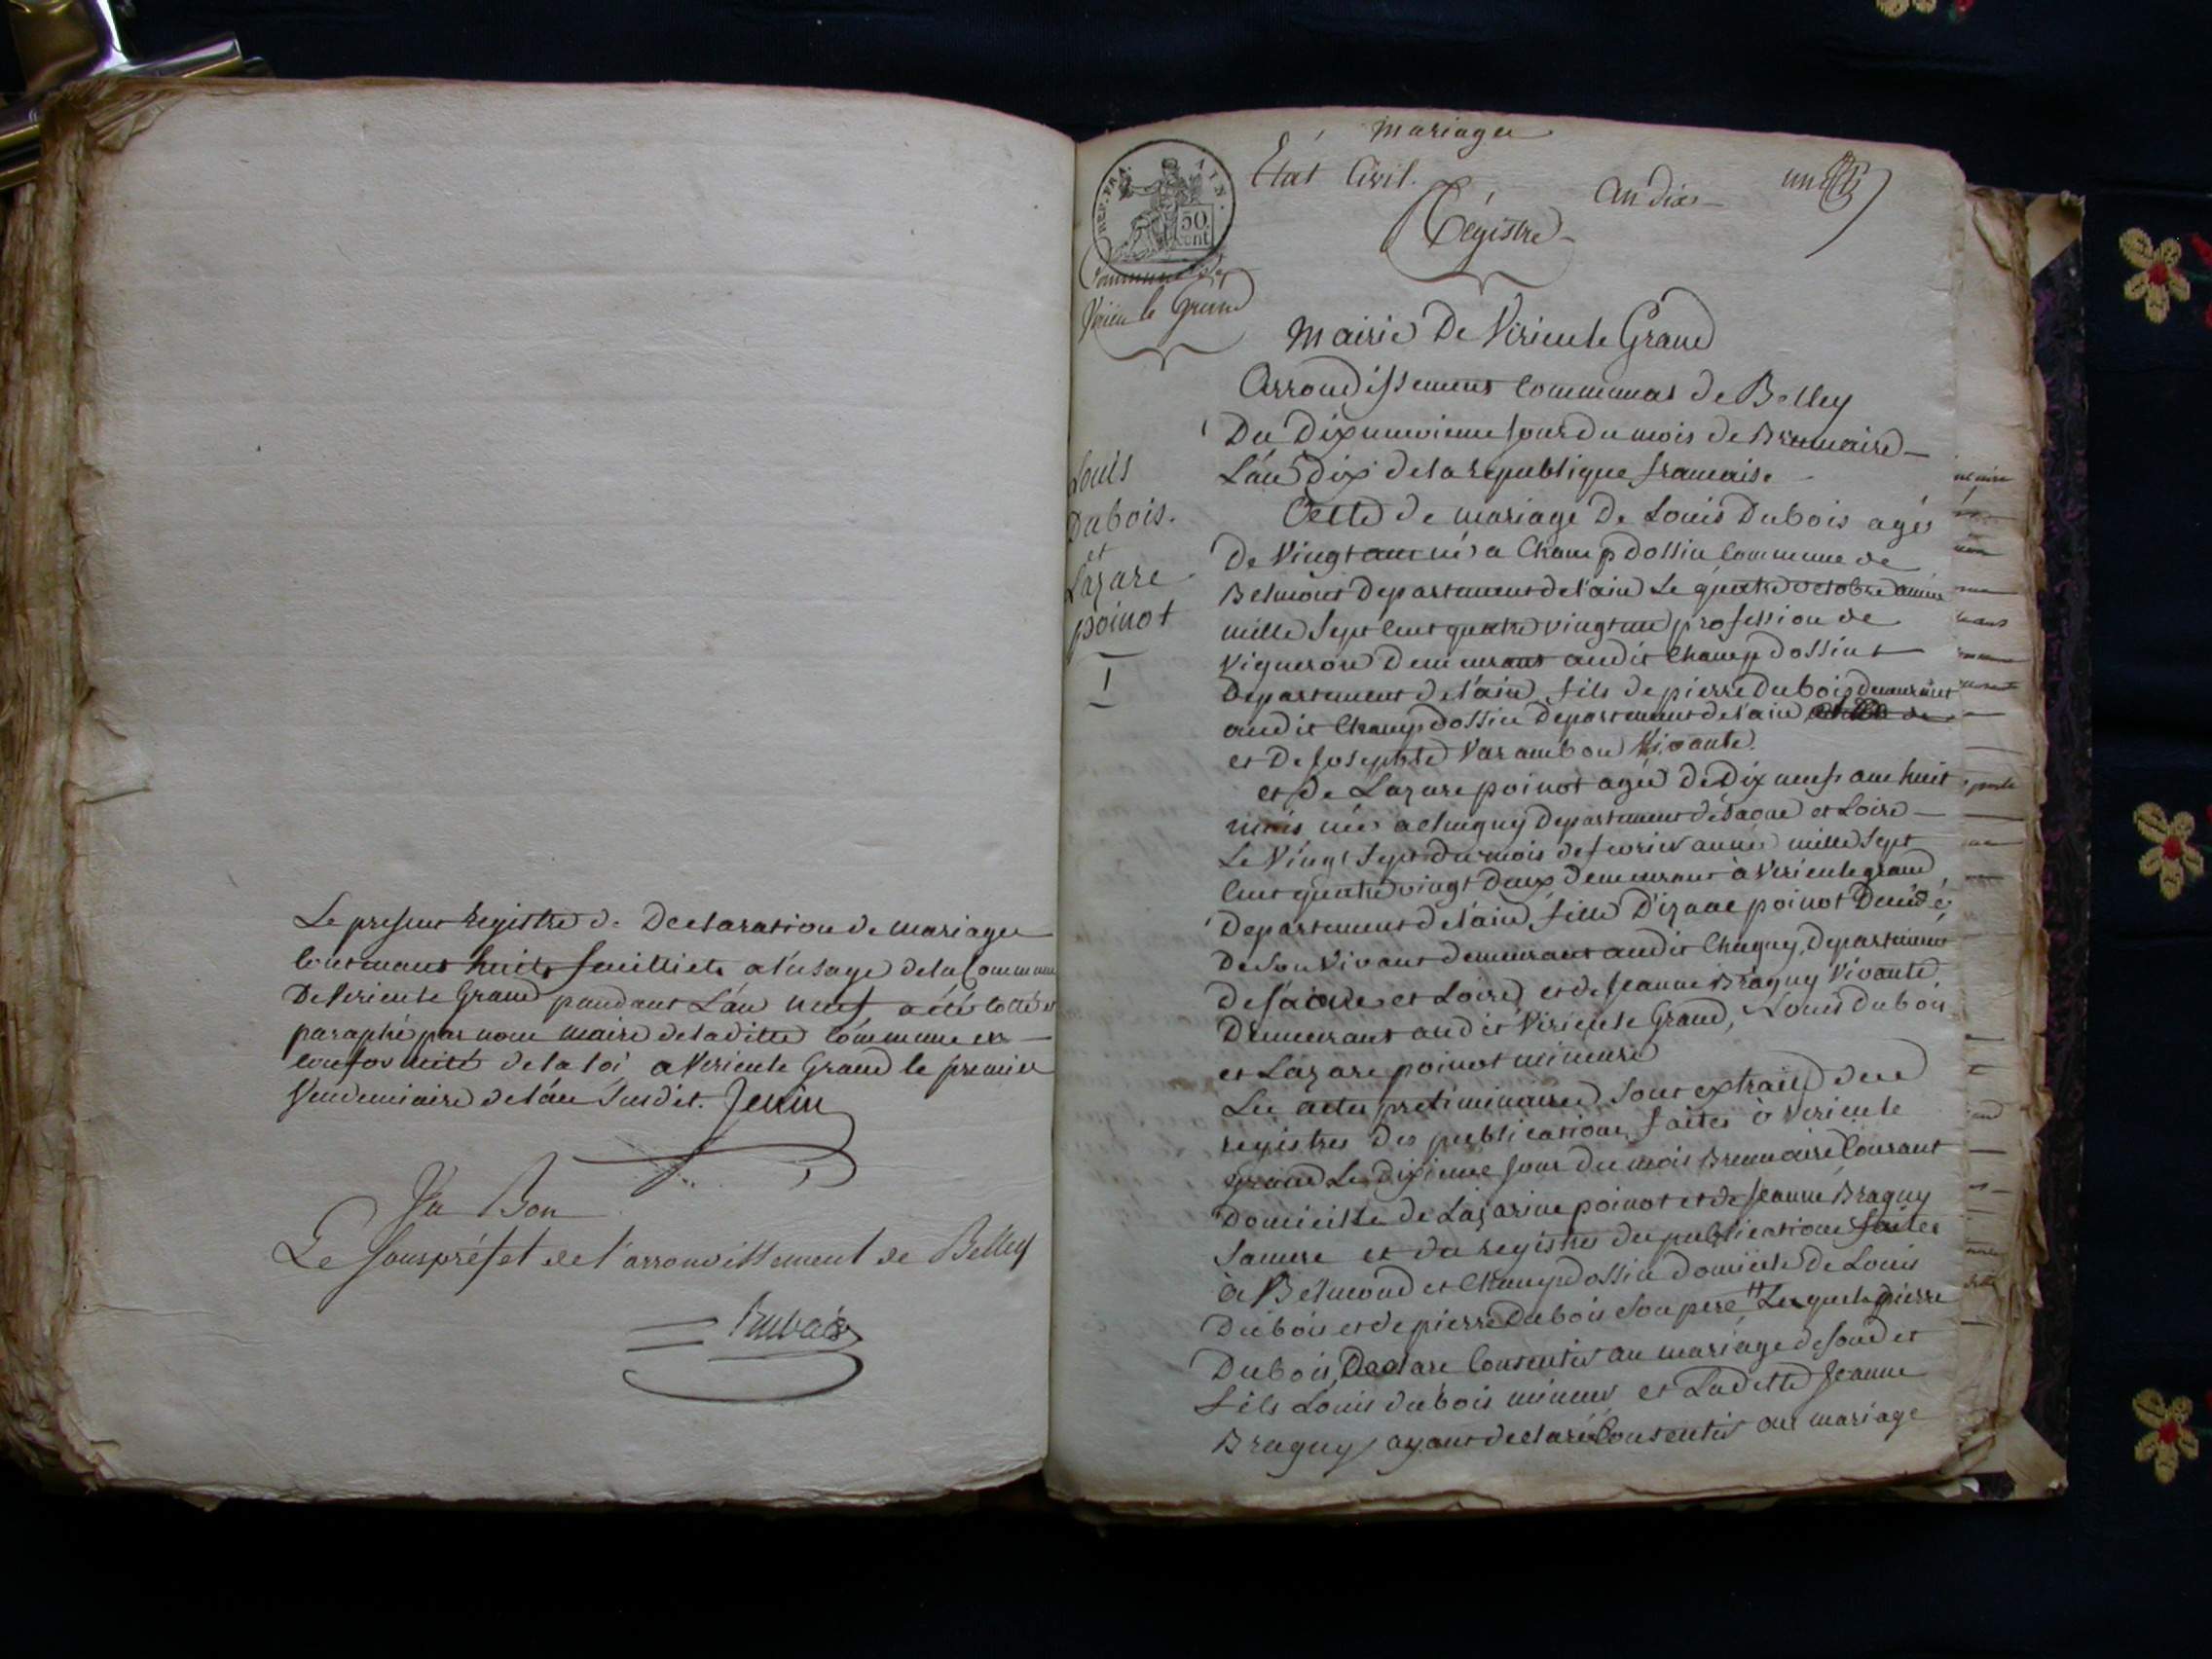 Le present registre de Declaration de mariages
contenant huit feuilliets a l'usage de la Commune
De Virieu le Grand pendant L'an neuf a été cotté et
paraphé par nous maire de la ditte Commune en
conformité de la loi a Virieu le Grand le premier
Vendemiaire de l'an Susdit. Jenin
Vu Bon
Le Souspréfet de l'arrondissement de Belley
mariages
Etat Civil.
an dix
un
Régistre
REP. FRA.
50
cent
Commune de
Virieu le Grand
Mairie De Virieu le Grand
Arrondissement Communal de Belley
Du Dixneuvieme Jour du mois de Brumaire
L'an dix de la republique francaise
Louis
Dubois.
et
Lazare
poinot
1
Acte de mariage De Louis Dubois agés
De Vingt ans né a Champdossin Commune de
Belmont Departement de l'ain Le quatre octobre année
mille Sept Cent quatre vingt un profession de
Vigneron Demeurant audit Champdossint
Departement de l'ain, fils de pierre Dubois Demeurant
audit Champdossin Departement de l'ain
et De Josephte Varambon Vivante.
et de Lazare poinot agée de Dix neuf ans huit
mois née a Chagny Departement de Saone et Loire
Le Vingt Sept du mois de fevrier année mille Sept
Cent quatre vingt Deux Demeurant à Virieu le grand
Departement de l'ain, fille D'izaac poinot Décédé
De Son Vivant demeurant audit Chagny, Departement
de Saone et Loire, et de Jeanne Bragny Vivante
Demeurant audit Virieu le Grand, Louis Dubois
et Lazare poinot mineurs
Les actes preliminaires Sont extraits des
registres des publications faites à Virieu le
grand Le Dixieme Jour du mois Brumaire Courant
Domicille de Lazarine poinot et de Jeanne Bragny
Sa mere et du registre des publications faites
à Belmond et Champdossin domicile de Louis
Dubois et de pierre Dubois Son pere Lesquels pierre
Dubois, Declare Consentir au mariage de Son dit
fils Louis dubois mineur et Laditte Jeanne
Bragny ayant declaré Consentir au mariage